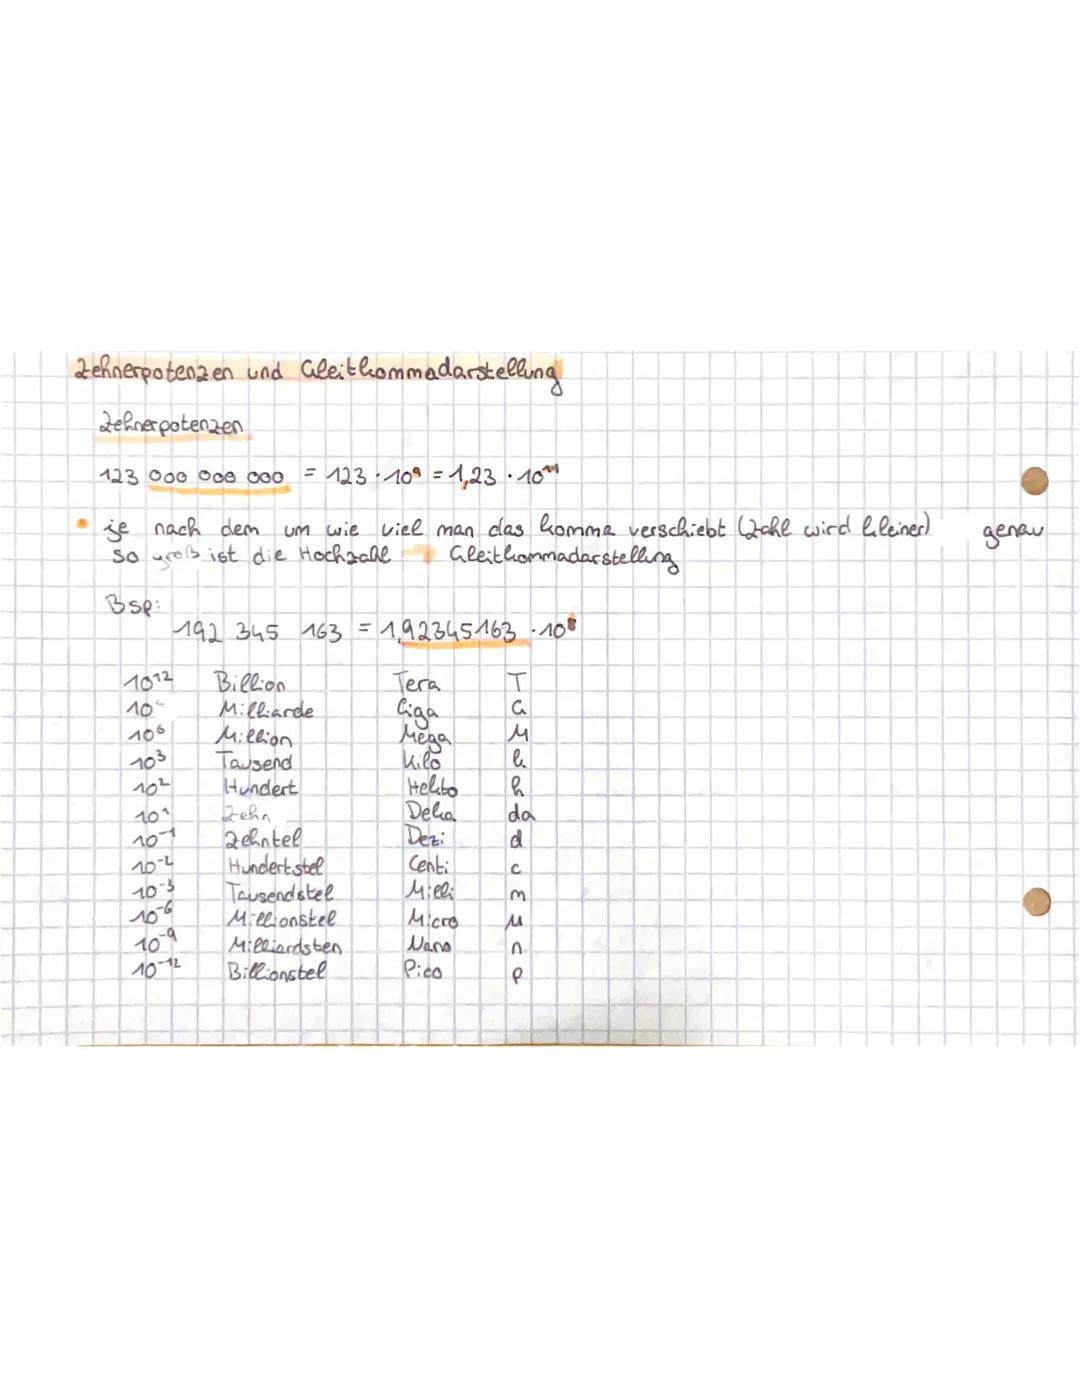 Zehnerpotenzen und Gleitkommadarstellung
Zehnerpotenzen
123 000 000 000 = 123 · 10⁹ = 1,23 · 10¹¹
• je nach dem um wie viel man das Komma verschiebt (Zahl wird kleiner) genau
so groß ist die Hochzahl → Gleitkommadarstellung
Bsp:
192 345 163 = 1,92345163 · 10⁸
10¹² Billion Tera T
10⁹ Milliarde Giga G
10⁶ Million Mega M
10³ Tausend Kilo k
10² Hundert Hekto h
10¹ Zehn Deka da
10⁻¹ Zehntel Dezi d
10⁻² Hundertstel Centi c
10⁻³ Tausendstel Milli m
10⁻⁶ Millionstel Micro µ
10⁻⁹ Milliardsten Nano n
10⁻¹² Billionstel Pico p